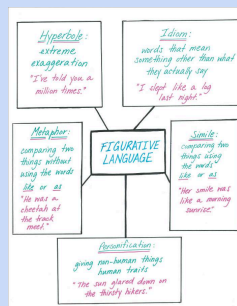 Hyperbole:
extreme
exaggeration
"I've told you a
million times."
Idiom:
words that mean
something other than what
they actually say
"I slept like a log
last night."
Metaphor:
comparing two
things without
using the words
like or as
"He was a
cheetah at the
track
meet."
FIGURATIVE
LANGUAGE
Simile:
comparing two
things using
the words
like or as
"Her smile was
like a morning
sunrise."
Personification:
giving non-human things
human traits
"The sun glared down on
the thirsty hikers."